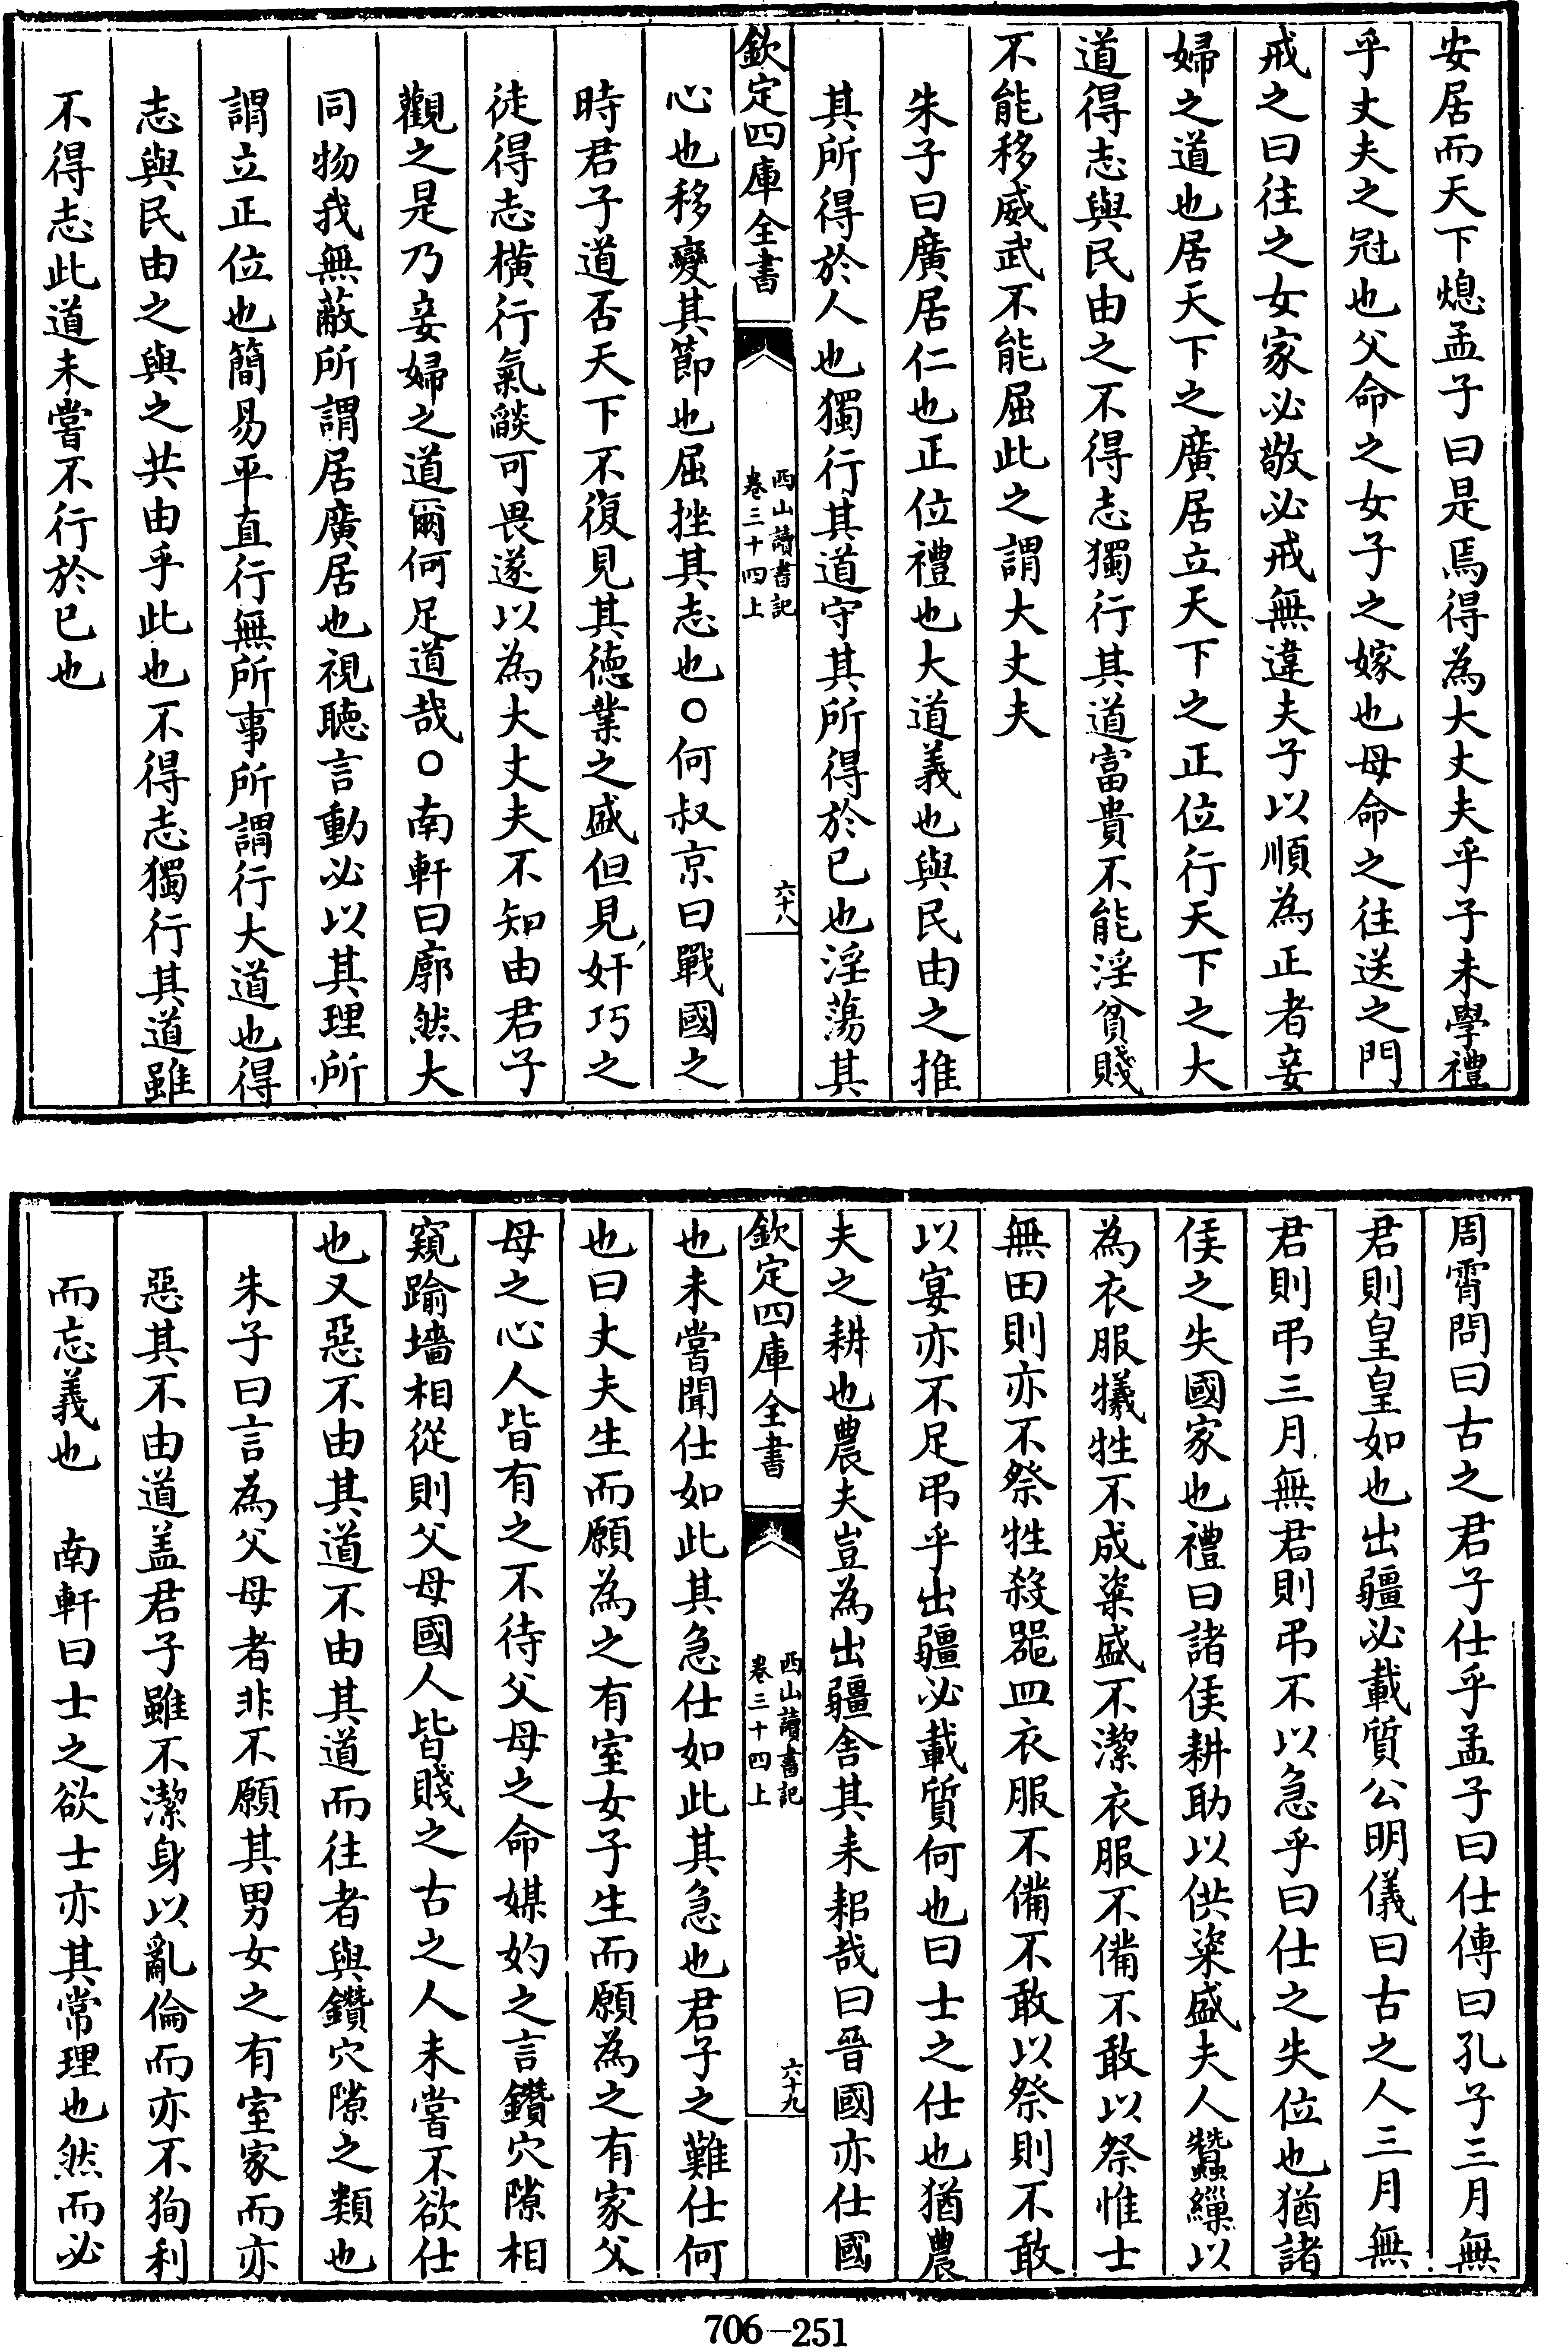 安居而天下熄孟子曰是焉得為大丈夫乎子未學禮
乎丈夫之冠也父命之女子之嫁也母命之往送之門
戒之曰往之女家必敬必戒無違夫子以順為正者妾
婦之道也居天下之廣居立天下之正位行天下之大
道得志與民由之不得志獨行其道富貴不能淫貧賤
不能移威武不能屈此之謂大丈夫
朱子曰廣居仁也正位禮也大道義也與民由之推
其所得於人也獨行其道守其所得於已也淫蕩其
欽定四庫全書
西山讀書記
卷三十四上
六十八
心也移變其節也屈挫其志也○何叔京曰戰國之
時君子道否天下不復見其德業之盛但見奸巧之
徒得志橫行氣燄可畏遂以為大丈夫不知由君子
觀之是乃妾婦之道爾何足道哉○南軒曰廓然大
同物我無蔽所謂居廣居也視聽言動必以其理所
謂立正位也簡易平直行無所事所謂行大道也得
志與民由之與之共由乎此也不得志獨行其道雖
不得志此道未嘗不行於已也
周霄問曰古之君子仕乎孟子曰仕傳曰孔子三月無
君則皇皇如也出疆必載質公明儀曰古之人三月無
君則弔三月無君則弔不以急乎曰仕之失位也猶諸
侯之失國家也禮曰諸侯耕助以供粢盛夫人蠶繅以
為衣服犧牲不成粢盛不潔衣服不備不敢以祭惟士
無田則亦不祭牲殺器皿衣服不備不敢以祭則不敢
以宴亦不足弔乎出疆必載質何也曰士之仕也猶農
夫之耕也農夫豈為出疆舍其耒耜哉曰晉國亦仕國
欽定四庫全書
西山讀書記
卷三十四上
六十九
也未嘗聞仕如此其急仕如此其急也君子之難仕何
也曰丈夫生而願為之有室女子生而願為之有家父
母之心人皆有之不待父母之命媒妁之言鑽穴隙相
窺踰墻相從則父母國人皆賤之古之人未嘗不欲仕
也又惡不由其道不由其道而往者與鑽穴隙之類也
朱子曰言為父母者非不願其男女之有室家而亦
惡其不由道盖君子雖不潔身以亂倫而亦不狥利
而忘義也　南軒曰士之欲士亦其常理也然而必
706-251